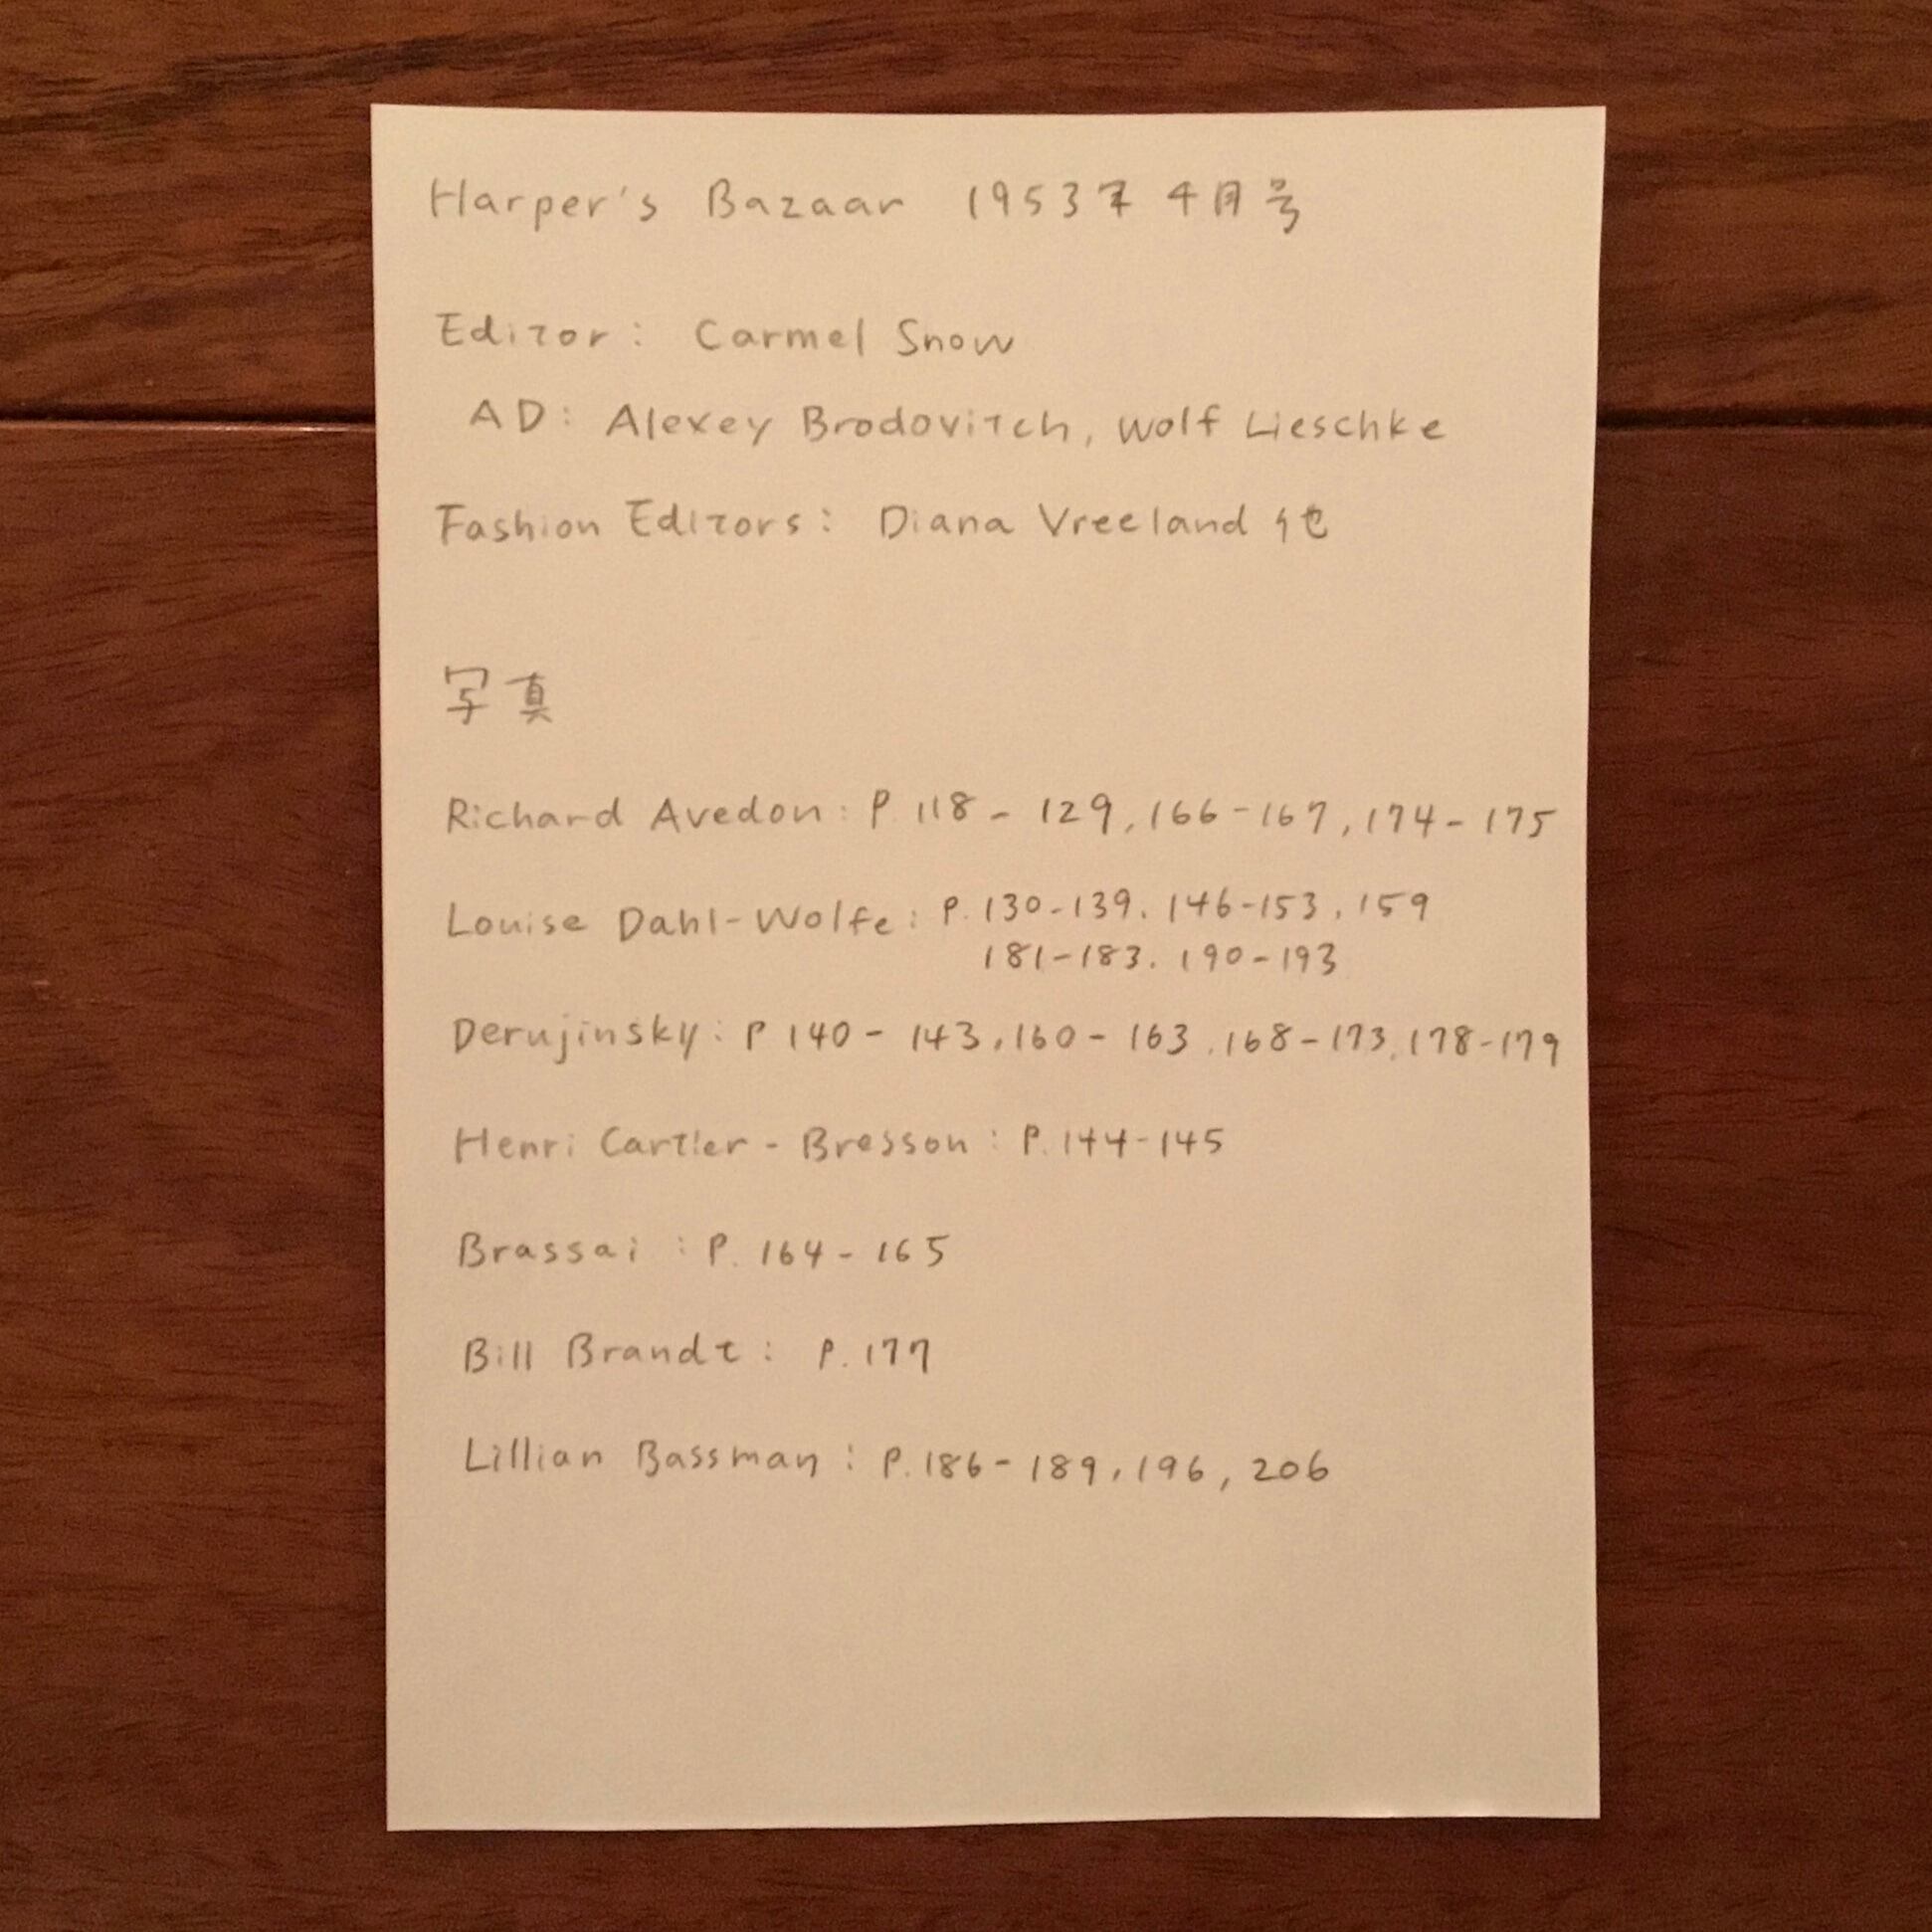 Harper's Bazaar 1953年 4月号
Editor: Carmel Snow
AD: Alexey Brodovitch, Wolf Lieschke
Fashion Editors: Diana Vreeland 他
写真
Richard Avedon: P. 118 - 129, 166-167, 174-175
Louise Dahl-Wolfe: P. 130-139, 146-153, 159
181-183, 190-193
Derujinsky: P 140 - 143, 160 - 163, 168-173, 178-179
Henri Cartier - Bresson: P. 144-145
Brassai: P. 164 - 165
Bill Brandt: P. 177
Lillian Bassman: P. 186 - 189, 196, 206